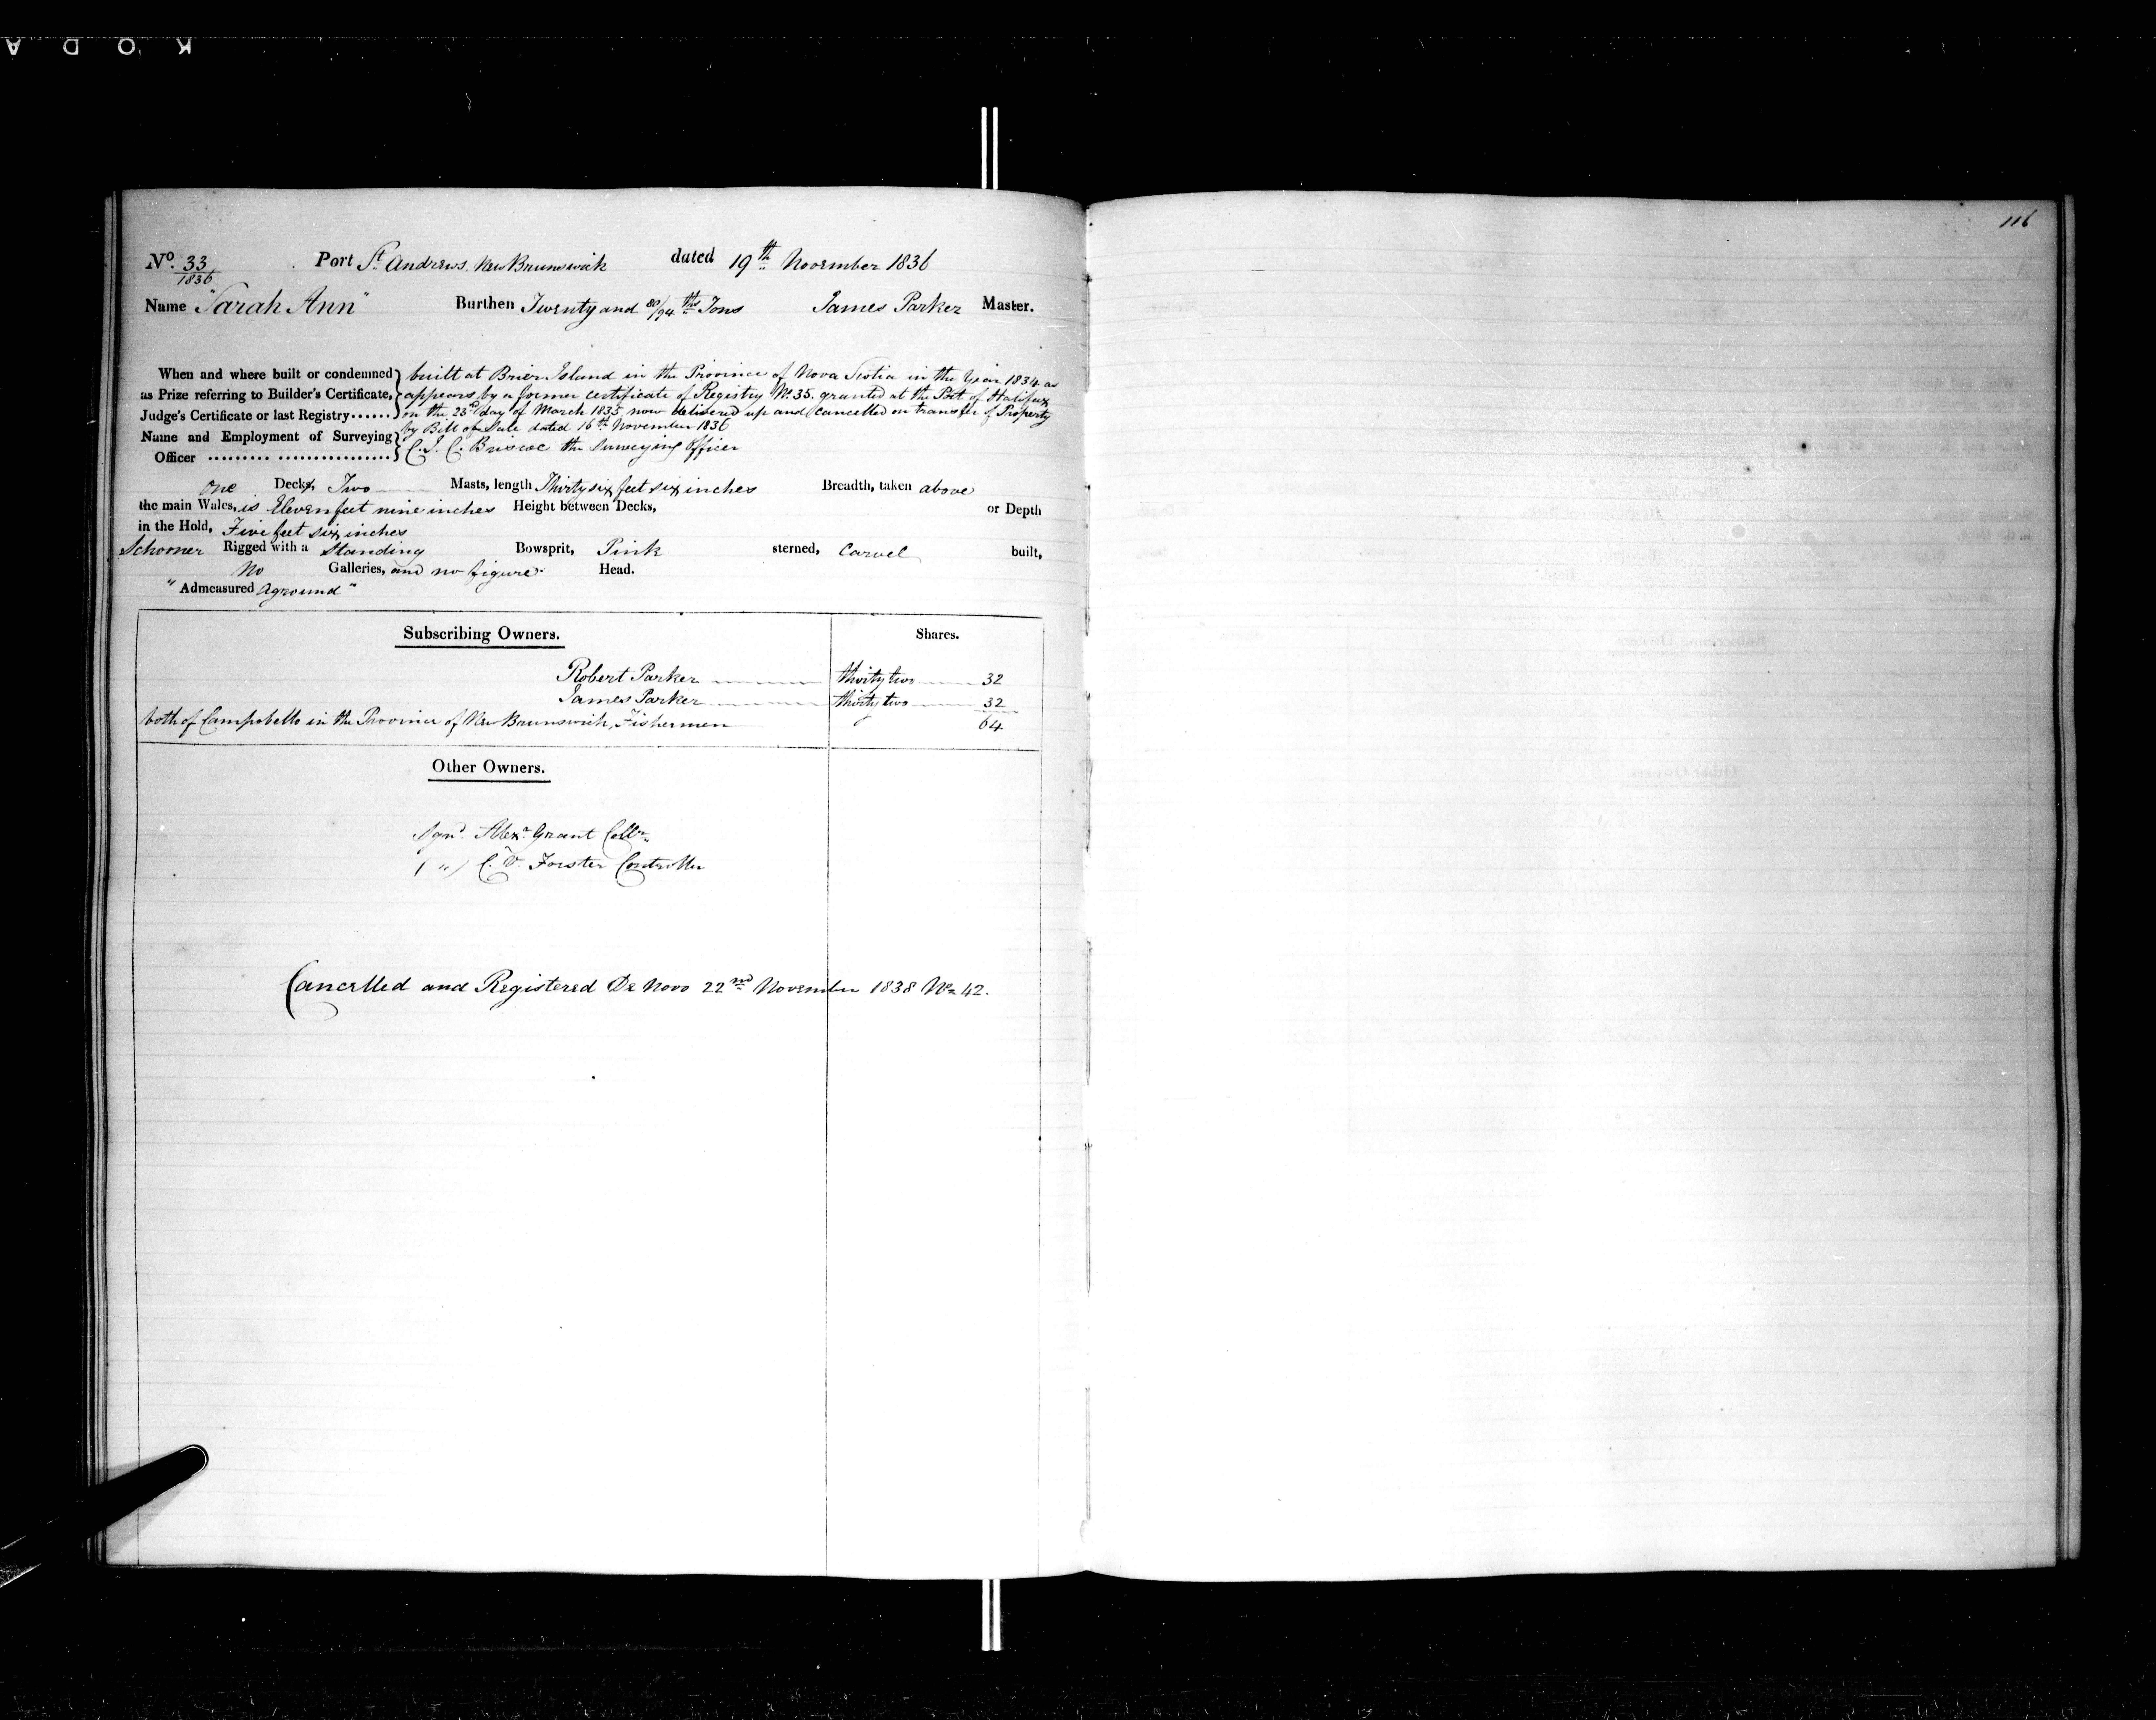 KODA
116
No. 33/1836 Port St. Andrews New Brunswick dated 19th November 1836
Name "Sarah Ann" Burthen Twenty and 80/94ths Tons James Parker Master.
When and where built or condemned built at Brier Island in the Province of Nova Scotia in the Year 1834 as
as Prize referring to Builder's Certificate, appears by a former certificate of Registry No. 35. granted at the Port of Halifax
Judge's Certificate or last Registry...... on the 23rd day of March 1835 now delivered up and cancelled on transfer of Property
by Bill of Sale dated 16th November 1836
Name and Employment of Surveying
Officer ......... ................ C. J. C. Briscoe the Surveying Officer
one Decks Two Masts, length Thirty six feet six inches Breadth, taken above
the main Wales, is Eleven feet nine inches Height between Decks, or Depth
in the Hold, Five feet six inches
Schooner Rigged with a Standing Bowsprit, Pink sterned, Carvel built,
No Galleries, and no figure Head.
"Admeasured Aground"
Subscribing Owners. Shares.
Robert Parker thirty two 32
James Parker thirty two 32
both of Campobello in the Province of New Brunswick, Fishermen 64
Other Owners.
Sgnd. Alexr. Grant Collr.
( " ) C. D. Forster Controller
Cancelled and Registered De Novo 22nd November 1838 No. 42.